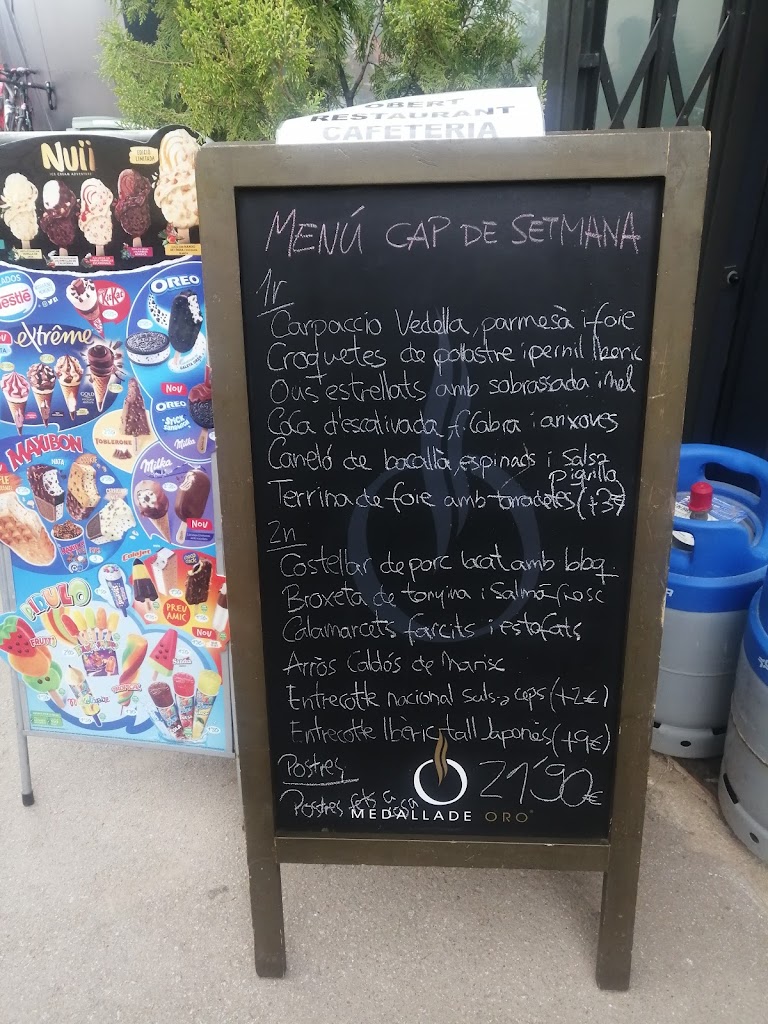 OBERT
RESTAURANT
CAFETERIA
MENÚ CAP DE SETMANA
1r
Carpaccio Vedella, parmesà i foie
Croquetes de pollastre i pernil Iberic
Ous estrellats amb sobrassada i mel
Coca d'escalivada, f. Cabra i anxoves
Caneló de bacallà, espinacs i Salsa
Piquillo
Terrina de foie amb torradetes (+3€)
2n
Costellar de porc lacat amb bbq
Broxeta de tonyina i Salmó
Calamarcets farcits i estofats
Arròs Caldós de Marisc
Entrecotte nacional salsa ceps (+2€)
Entrecotte Ibèric tall Japonès (+9€)
Postres
Postres fets a
casa
21'90€
MEDALLA DE ORO
Nuii
ICE CREAM ADVENTURE
Nestlé
KitKat
OREO
extrême
NOU
OREO
TOBLERONE
Milka
MAXIBON
NATA
COOKIE
Milka
NOU
PIRULO
PREU
AMIC
NOU